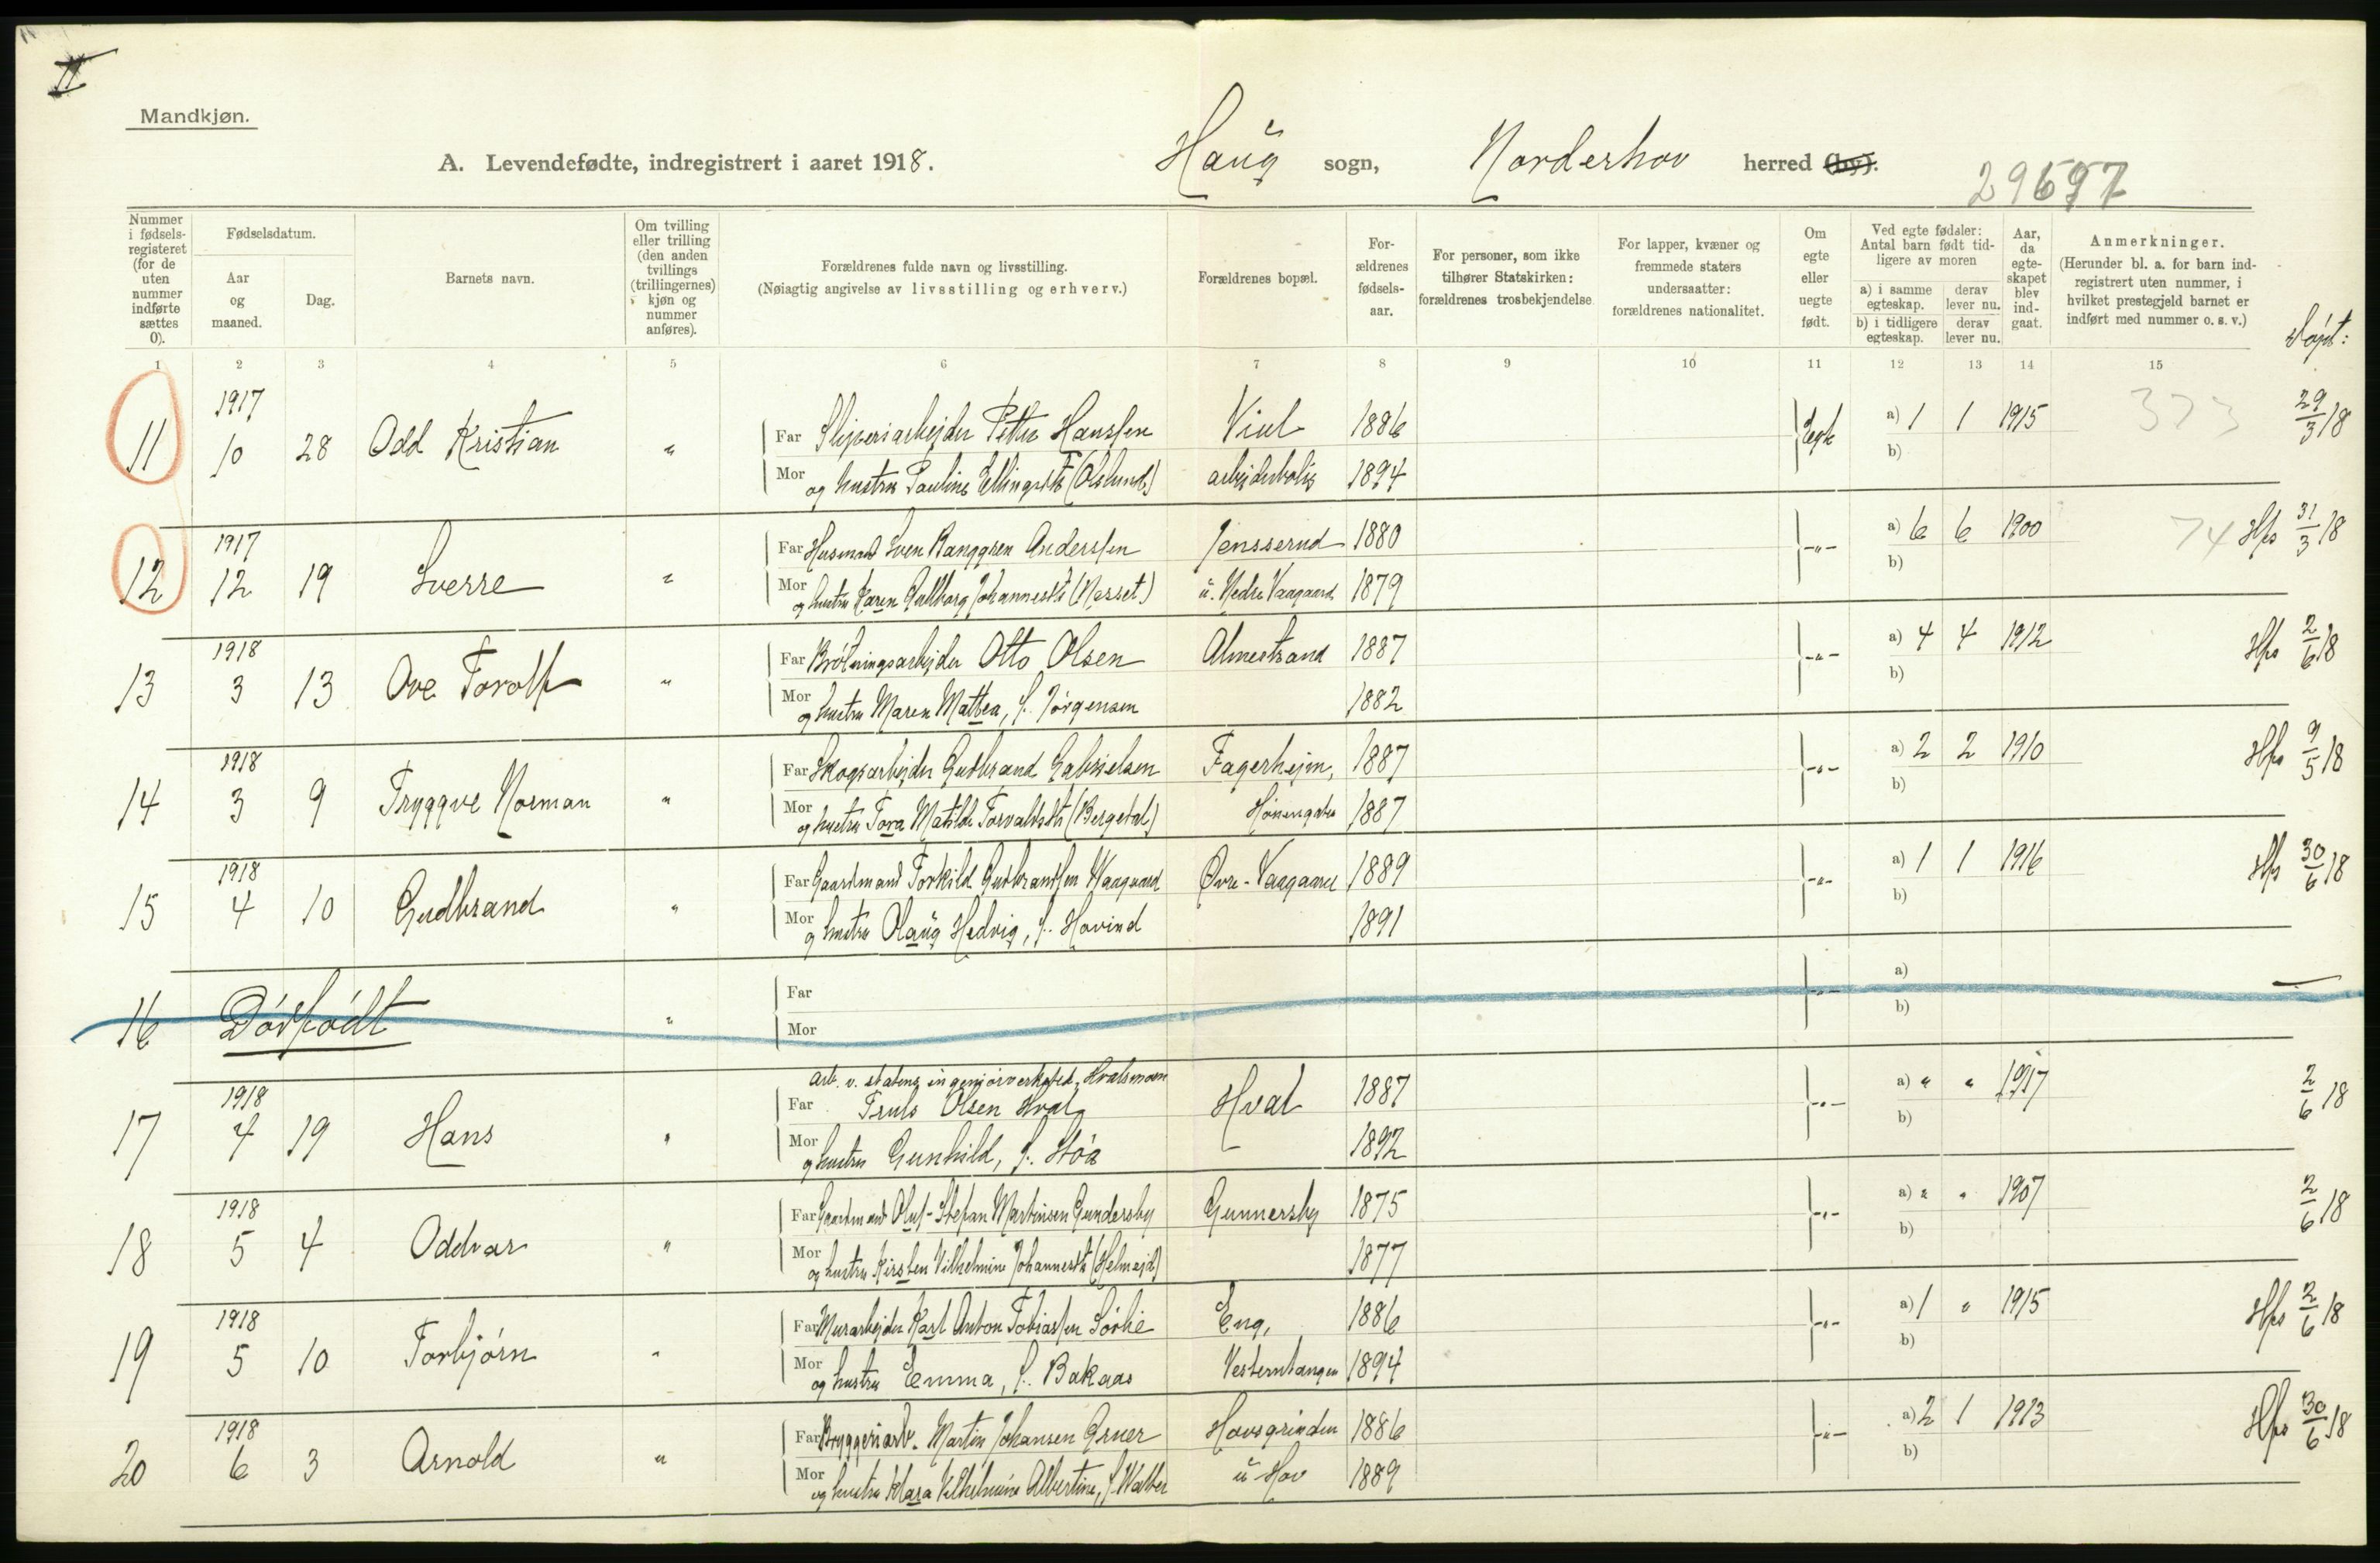 II
Mandkjøn.
A. Levendefødte, indregistrert i aaret 1918. Haug sogn, Norderhov herred (by).
29697
Nummer i fødsels-registeret (for de uten nummer indførte sættes 0).
Fødselsdatum.
Aar og maaned.
Dag.
Barnets navn.
Om tvilling eller trilling (den anden tvillings (trillingernes) kjøn og nummer anføres).
Forældrenes fulde navn og livsstilling.
(Nøiagtig angivelse av livsstilling og erhverv.)
Forældrenes bopæl.
For-ældrenes fødsels-aar.
For personer, som ikke tilhører Statskirken: forældrenes trosbekjendelse.
For lapper, kvæner og fremmede staters undersaatter: forældrenes nationalitet.
Om egte eller uegte født.
Ved egte fødsler: Antal barn født tid-ligere av moren
a) i samme egteskap. derav lever nu.
b) i tidligere egteskap. derav lever nu.
Aar, da egte-skapet blev ind-gaat.
Anmerkninger.
(Herunder bl. a. for barn ind-registrert uten nummer, i hvilket prestegjeld barnet er indført med nummer o. s. v.)
Døpt:
1 2 3 4 5 6 7 8 9 10 11 12 13 14 15
11 1917 10 28 Odd Kristian " Far Sliperiarbejder Petter Hanssen Viul 1886 Egte a) 1 1 1915 373 29/3 18
Mor og hustru Pauline Ellingsdtr (Oslund) arbejderbolig 1894 b)
12 1917 12 19 Sverre " Far Husmand Sven Ranggren Anderssen Jensserud 1880 -"- a) 6 6 1900 74 Hps 31/3 18
Mor og hustru Karen Gullborg Johannesdtr (Nesset) u. Nedre Vaagaard 1879 b)
13 1918 3 13 Ove Torolf " Far Brøtningsarbejder Otto Olsen Almestrand 1887 -"- a) 4 4 1912 Hps 2/6 18
Mor og hustru Maren Mathea, f. Jørgensen 1882 b)
14 1918 3 9 Tryggve Norman " Far Skogsarbejder Gudbrand Gabrielsen Fagerhejm, 1887 -"- a) 2 2 1910 Hps 9/5 18
Mor og hustru Tora Matilde Torvaldsdtr (Bergedal) Hønengaten 1887 b)
15 1918 4 10 Gudbrand " Far Gaardmand Torkild Gudbrandsen Vaagaard Øvre-Vaagaard 1889 -"- a) 1 1 1916 Hps 30/6 18
Mor og hustru Olaug Hedvig, f. Hovind 1891 b)
16 Dødfødt " Far -"- a) —
Mor b)
17 1918 4 19 Hans " arb. v. statens ingeniørverksted, Hvalsmoen
Far Truls Olsen Hval Hval 1887 -"- a) " " 1917 2/6 18
Mor og hustru Gunhild, f. Støa 1892 b)
18 1918 5 4 Oddvar " Far Gaardmand Oluf-Stefan Martinsen Gundersby Gunnersby 1875 -"- a) " " 1907 2/6 18
Mor og hustru Kirsten Vilhelmine Johannesdtr (Helmejd) 1877 b)
19 1918 5 10 Torbjørn " Far Murarbejder Karl Anton Tobiassen Sørlie Eng, 1886 -"- a) 1 " 1915 Hps 2/6 18
Mor og hustru Emma, f. Bakaas Vesterntangen 1894 b)
20 1918 6 3 Arnold " Far Bryggeriarb. Martin Johansen Gruer Hovsgrinden 1886 -"- a) 2 1 1913 Hps 30/6 18
Mor og hustru Klara Vilhelmine Albertine, f. Walber u Hov 1889 b)